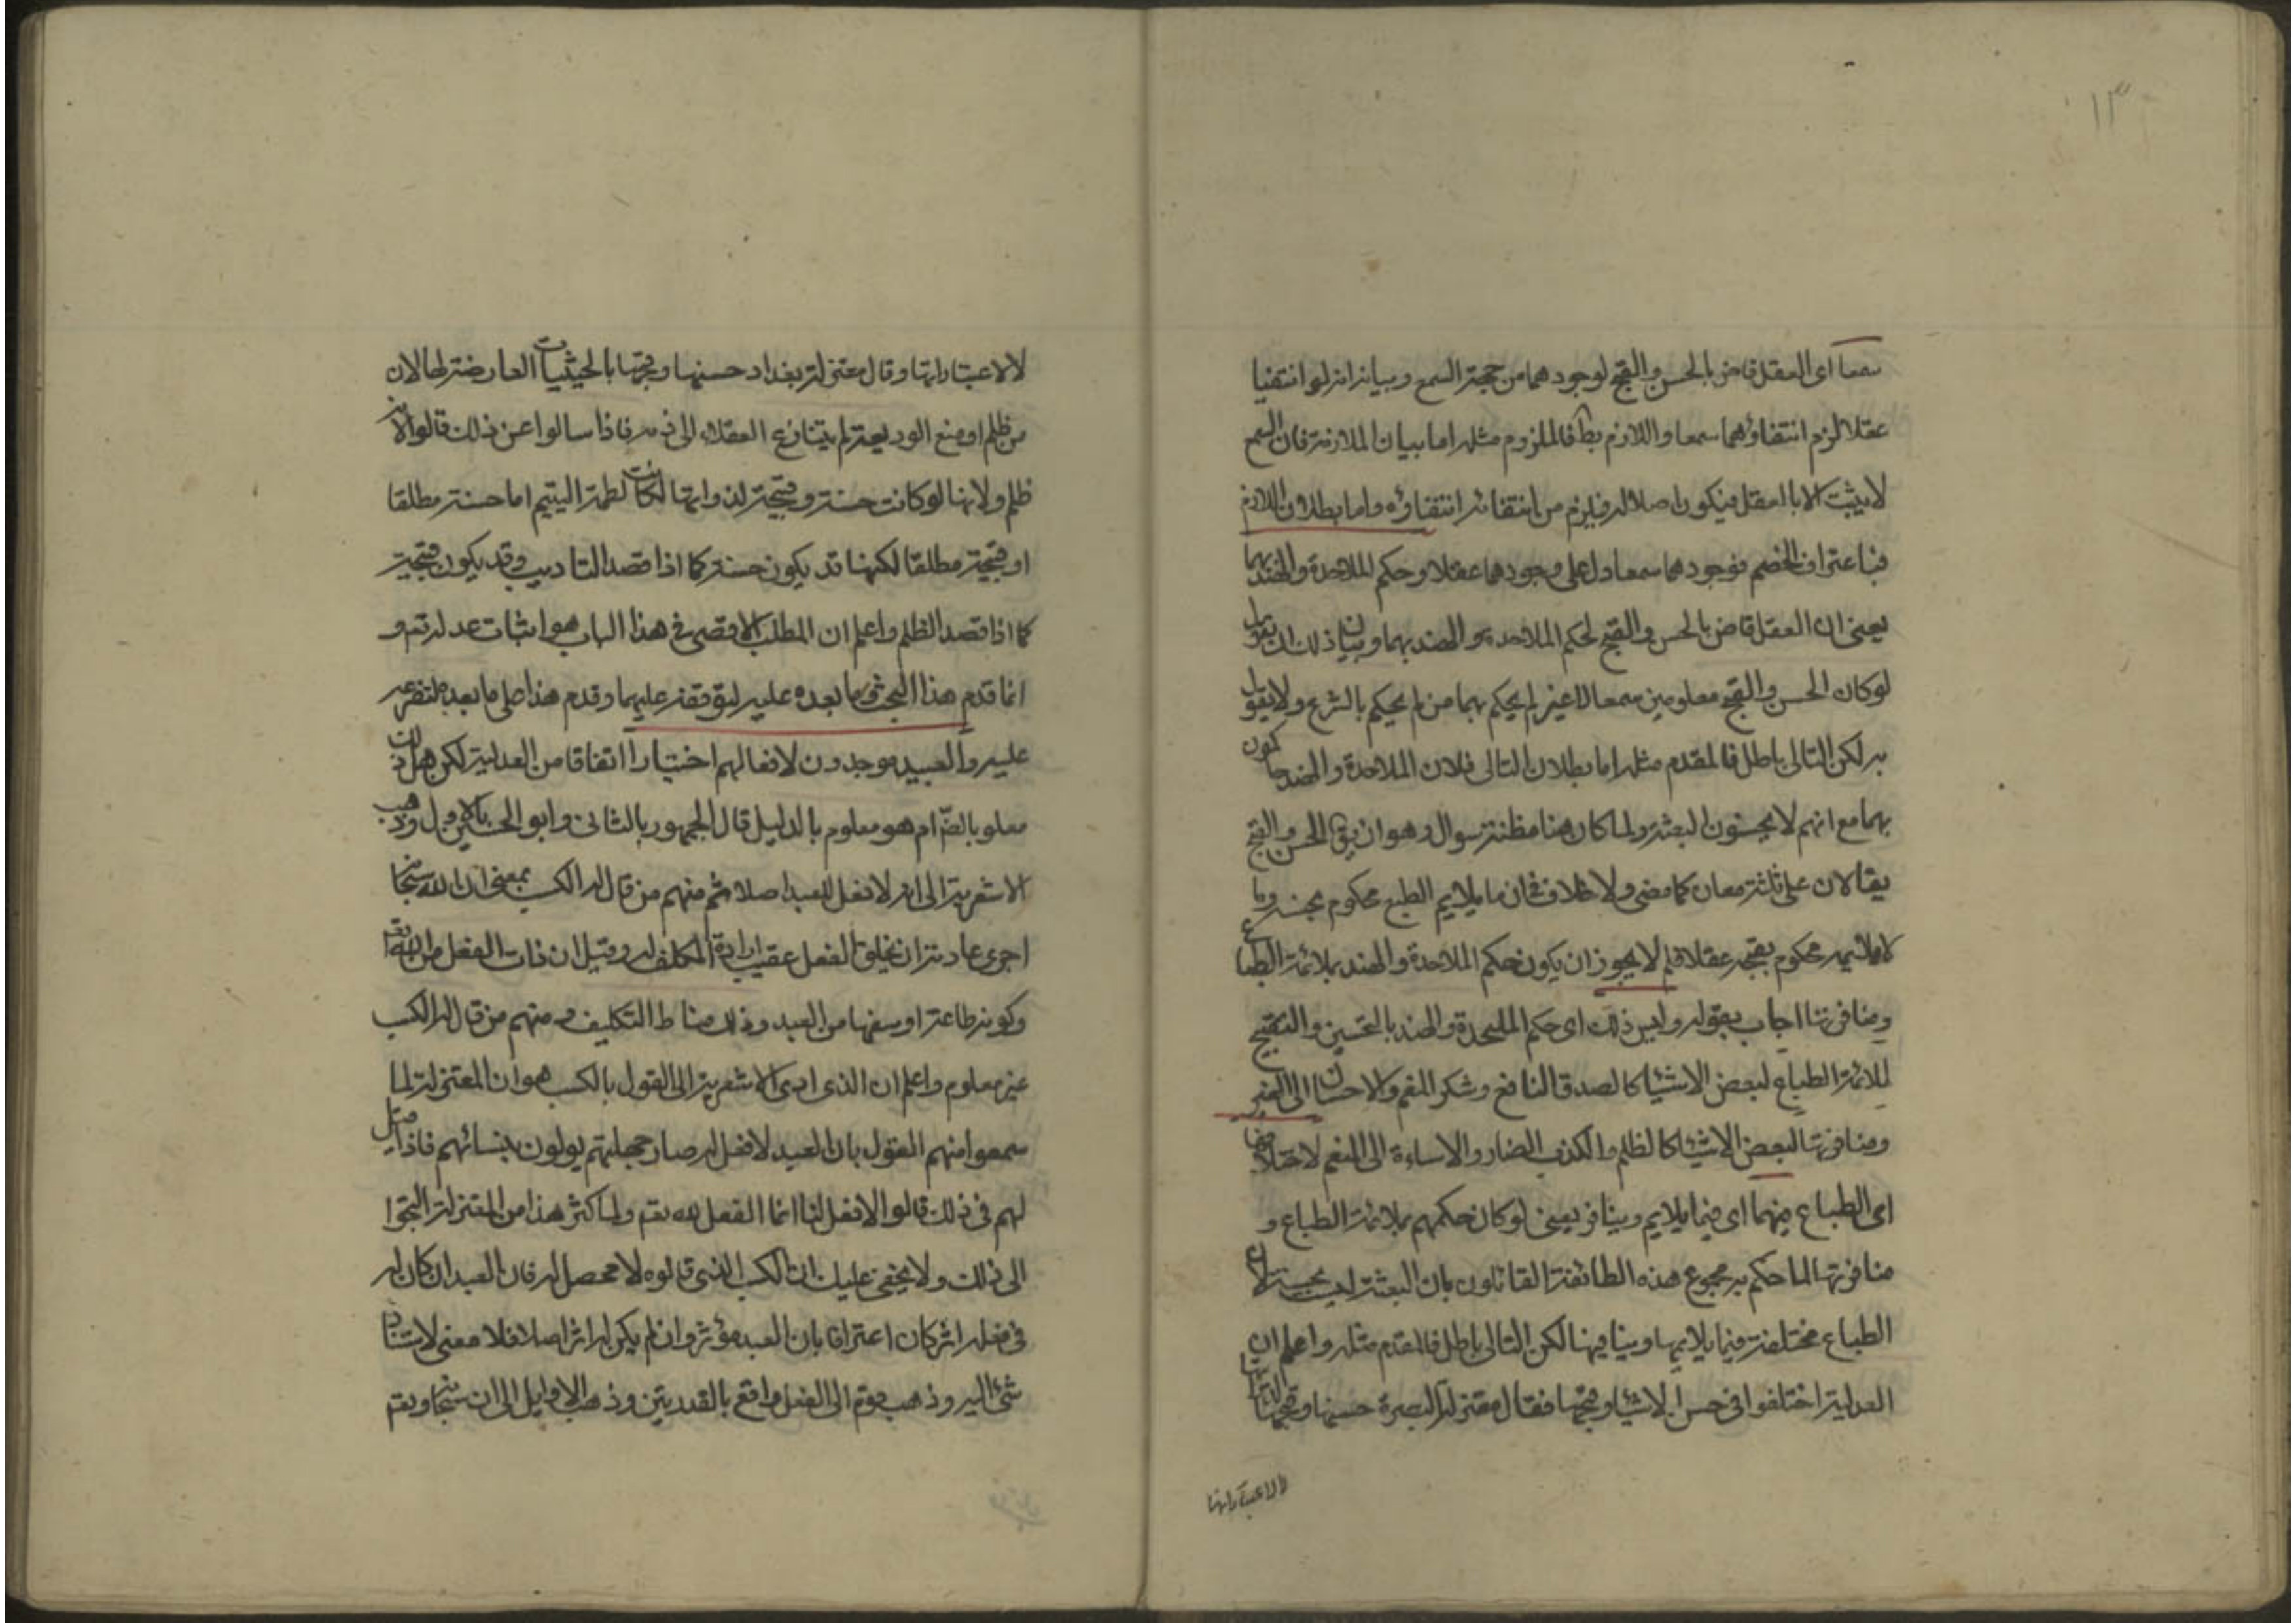 ١٣
سمعا اى العقل قاض بالحسن والقبح لوجودهما من جهة السمع وبيانه انه لو انتفيا
عقلا لزم انتفاؤهما سمعا واللازم بط فالملزوم مثله اما بيان الملازمة فان السمع
لا يثبت الا بالعقل فيكون اصلا له فيلزم من انتفائه انتفاؤه واما بطلان اللازم
فباعتراف الخصم فوجودهما سمعا دل على وجودهما عقلا وحكم الملاحدة والهند بهما
يعنى ان العقل قاض بالحسن والقبح لحكم الملاحدة والهند بهما وبيان ذلك ان يقول
لو كان الحسن والقبح معلومين سمعا لا غير لم يحكم بهما من لم يحكم بالشرع ولا يقول
به لكن التالى باطل فالمقدم مثله اما بطلان التالى فلان الملاحدة والهند حاكمون
بهما مع انهم لا يحسنون البعثة ولما كان هنا مظنة سوال وهو ان يق الحسن والقبح
يقالان على ثلثة معان كما مضى ولا خلاف فى ان ما يلايم الطبع محكوم بحسنه وما
لا يلائمه محكوم بقبحه عقلا فلم لا يجوز ان يكون حكم الملاحدة والهند بملائمة الطباع
ومنافرتها اجاب بقوله وليس ذلك اى حكم الملحدة والهند بالتحسين والتقبيح
لملائمة الطباع لبعض الاشيا كالصدق النافع وشكر المنعم والاحسان الى الغير
ومنافرتها لبعض الاشيا كالظلم والكذب الضار والاساءة الى المنعم لاختلافها
اى الطباع فيهما اى فيما يلايم وينافر يعنى لو كان حكمهم بملائمة الطباع و
منافرتها لما حكم به مجموع هذه الطائفة القائلون بان البعثة ليست بحسنة لان
الطباع مختلفة فيما يلايمها وينافيها لكن التالى باطل فالمقدم مثله واعلم ان
العدلية اختلفوا فى حسن الاشيا وقبحها فقال معتزلة البصرة حسنها وقبحها
لالاعتباراتها
لالاعتباراتها وقال معتزلة بغداد حسنها وقبحها بالحيثيات العارضة لها لان
من ظلم او منع الوديعة لم يتنازع العقلاء الى ذمه فاذا سالوا عن ذلك قالوا لانه
ظلم ولانها لو كانت حسنة وقبيحة لذواتها لكانت لطمة اليتيم اما حسنة مطلقا
او قبيحة مطلقا لكنها قد يكون حسنة كما اذا قصد التاديب وقد يكون قبيحة
كما اذا قصد الظلم واعلم ان المطلب الاقصى فى هذا الباب هو اثبات عدله تعم و
انما قدم هذا البحث وما بعده عليه لتوقفه عليهما وقدم هذا على ما بعده لتفرعه
عليه والعبيد موجدون لافعالهم اختيارا اتفاقا من العدلية لكن هل ذلك
معلوم بالضرام هو معلوم بالدليل قال الجمهور بالثانى وابو الحسين بالاول وذهب
الاشعرية الى انه لا فعل للعبد اصلا ثم منهم من قال له الكسب بمعنى ان الله سبحانه
اجرى عادته ان يخلق الفعل عقيب ارادة المكلف له وقيل ان ذات الفعل من الله تعم
وكونه طاعة او سفها من العبد وذلك مناط التكليف ومنهم من قال له الكسب
غير معلوم واعلم ان الذى ادى الاشعرية الى القول بالكسب هو ان المعتزلة لما
سمعوا منهم القول بان العبد لا فعل له صار جهلتهم يولون بنسائهم فاذا قيل
لهم فى ذلك قالوا لا فعل لنا انما الفعل لله تعم ولما كثر هذا من المعتزلة التجوا
الى ذلك ولا يخفى عليك ان الكسب الذى قالوه لا محصل له فان العبد ان كان له
فى فعله اثر كان اعترافا بان العبد مؤثر وان لم يكن له اثر اصلا فلا معنى لاستناد
شئ اليه وذهب قوم الى الفعل واقع بالقدرتين وذهب الاوايل الى ان سبحانه وتعم